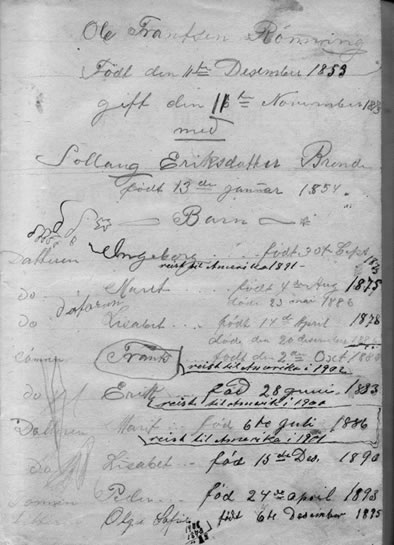 Ole Frantsen Rönning
Født den 11te Desember 1853
gift den 11te November
med
Sollaug Eriksdatter Brend
født 13de januar 1854.
Barn
Datteren Ingeborg .. født 30t Sept 1873
reist til Amerika 1891
do Marit ... født 4de Aug 1875
døde 23 mai 1886
do Lisabet ... født 14d April 1878
døde den 20 desember
sønnen Frants født den 2den Oct 1880
reist til Amerika i 1902
do Erik ... fød 28 juni 1883
reist til Amerik i 1900
Datteren Marit .. fød 6te juli 1886
reist til Amerika i 1901
do Lisabet ... fød 15de Des. 1890
Sønnen Peder ... fød 24de april 1893
Olga Sofie født 6te desember 1895